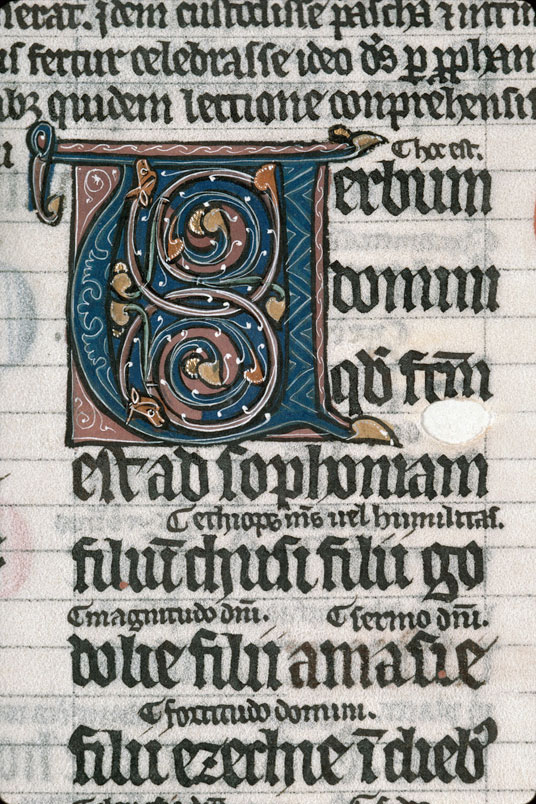 fuerat. Idem custodisse pascha ⁊
us fertur celebrasse ideo dn̄s ꝑ ꝓphan
abꝫ quidem lectione conprehensis
⸿ hoc est.
Verbum
domini
qd̄ fctm̄
est ad sophoniam
⸿ ethiops m̄s uel humilitas.
filiū chusi filii go
⸿ magnitudo dn̄i. ⸿ sermo dn̄i.
dolie filii amasie
⸿ fortitudo domini.
filii ezechie ī dieb⁹